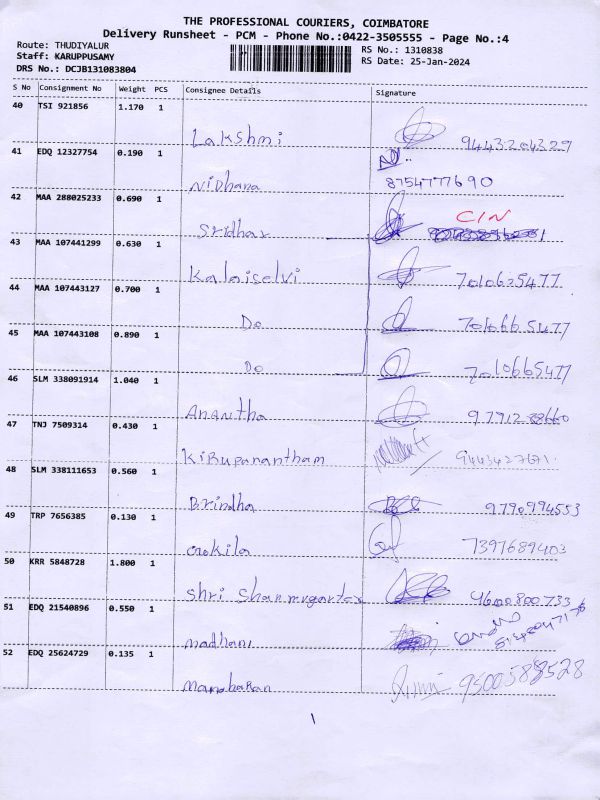 THE PROFESSIONAL COURIERS, COIMBATORE
Delivery Runsheet - PCM - Phone No.:0422-3505555 - Page No.:4
Route: THUDIYALUR
RS No.: 1310838
Staff: KARUPPUSAMY
RS Date: 25-Jan-2024
DRS No.: DCJB131083804
S No Consignment No Weight PCS Consignee Details Signature
40 TSI 921856 1.170 1
Lakshmi 9443204329
41 EDQ 12327754 0.190 1
Nidhana 8754777690
42 MAA 288025233 0.690 1
Sridhar C/N
43 MAA 107441299 0.630 1
Kalaiselvi 7010625477
44 MAA 107443127 0.700 1
Do 7010665477
45 MAA 107443108 0.890 1
Do 7010665477
46 SLM 338091914 1.040 1
Anantha 9791288660
47 TNJ 7509314 0.430 1
Kirupanantham 9443427671
48 SLM 338111653 0.560 1
Brindha 9790994553
49 TRP 7656385 0.130 1
7397689403
50 KRR 5848728 1.800 1
Shri 9600800733
51 EDQ 21540896 0.550 1
Madhani
52 EDQ 25624729 0.135 1
Manoharan 9500588528
1